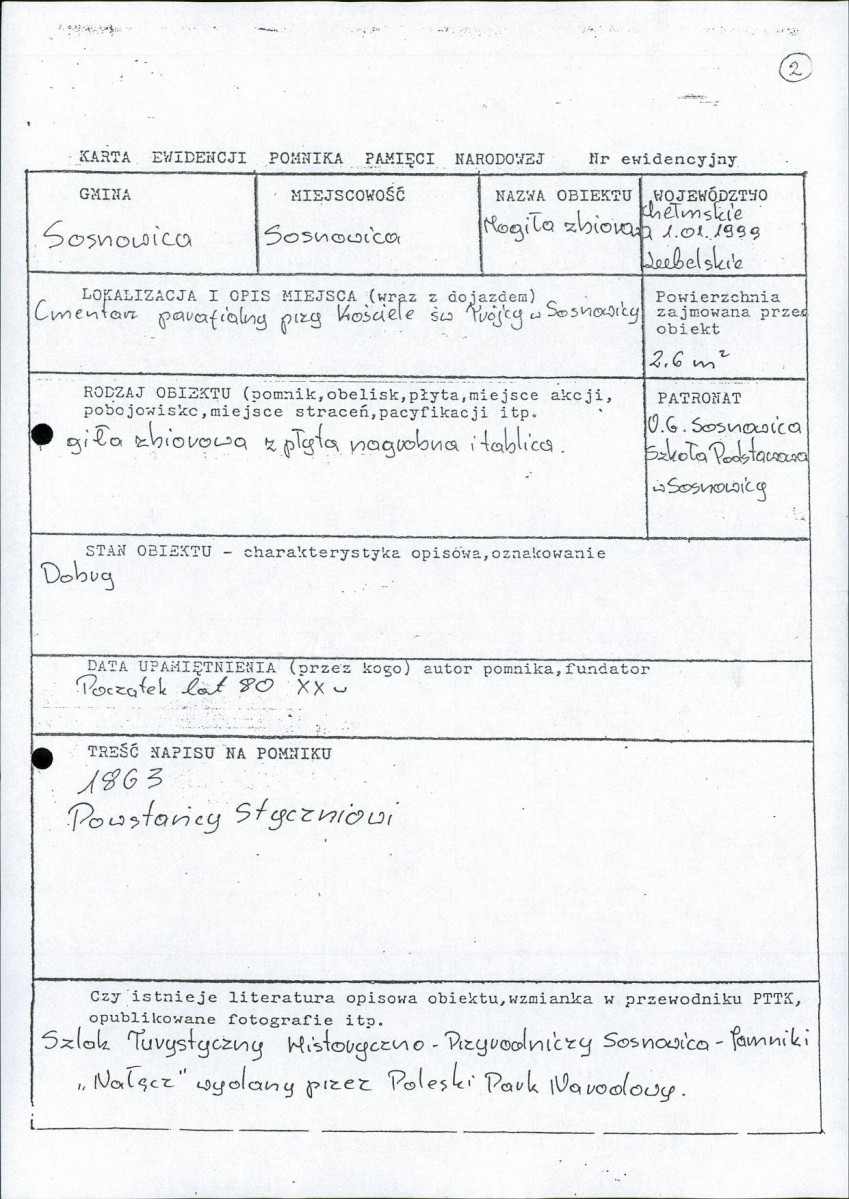 2
KARTA EWIDENCJI POMNIKA PAMIĘCI NARODOWEJ Nr ewidencyjny
GMINA
Sosnowica
MIEJSCOWOŚĆ
Sosnowica
NAZWA OBIEKTU
Mogiła zbiorowa
WOJEWÓDZTWO
Chełmskie
1.01.1999
Lubelskie
LOKALIZACJA I OPIS MIEJSCA (wraz z dojazdem)
Cmentarz parafialny przy Kościele św Trójcy w Sosnowicy
Powierzchnia
zajmowana przez
obiekt
2,6 m²
RODZAJ OBIEKTU (pomnik,obelisk,płyta,miejsce akcji,
pobojowisko,miejsce straceń,pacyfikacji itp.
giła zbiorowa z płytą nagrobną i tablicą.
PATRONAT
U.G. Sosnowica
Szkoła Podstawowa
w Sosnowicy
STAN OBIEKTU - charakterystyka opisowa,oznakowanie
Dobry
DATA UPAMIĘTNIENIA (przez kogo) autor pomnika,fundator
Początek lat 80 XX w
TREŚĆ NAPISU NA POMNIKU
1863
Powstańcy Styczniowi
Czy istnieje literatura opisowa obiektu,wzmianka w przewodniku PTTK,
opublikowane fotografie itp.
Szlak Turystyczny Historyczno - Przyrodniczy Sosnowica - Pomniki
„Nałęcz" wydany przez Poleski Park Narodowy.